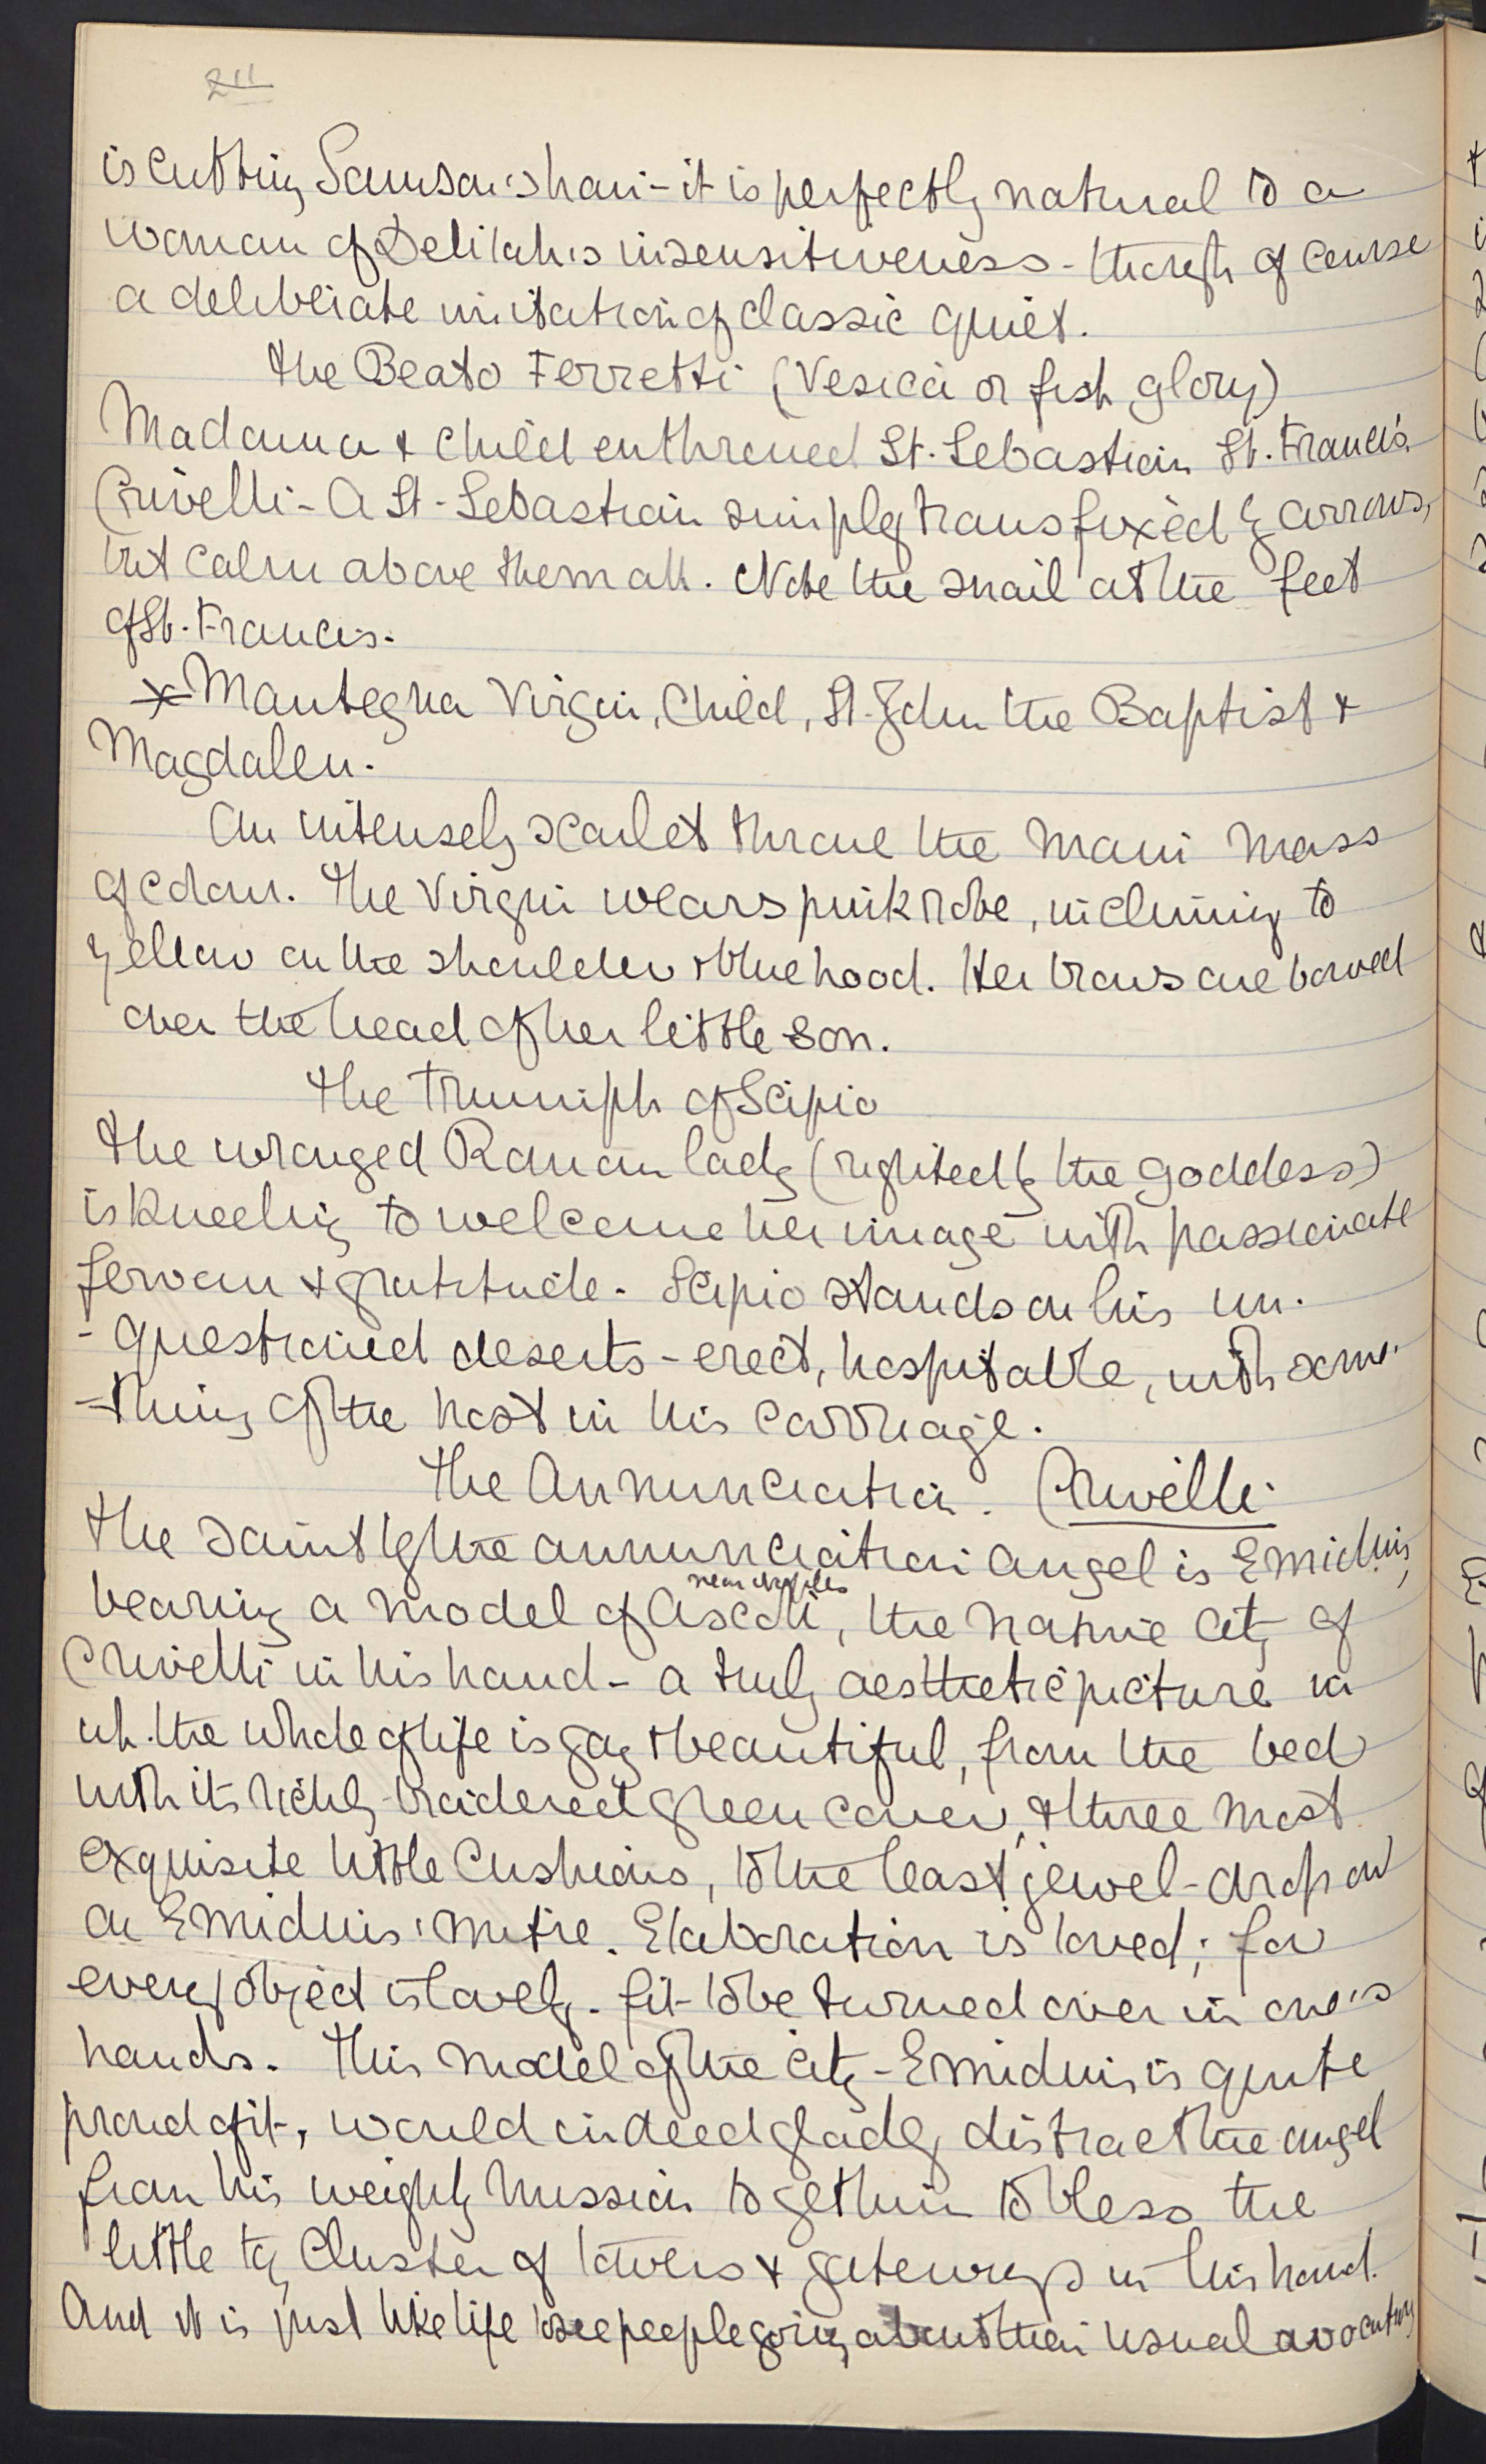 211
is cutting Samson's hair - it is perfectly natural to a
woman of Delilah's insensitiveness - though of course
a deliberate imitation of classic quiet.
The Beato Ferretti (Vesica or fish glory)
Madonna & Child enthroned St. Sebastian St. Francis
Crivelli - A St - Sebastian simply transfixed by arrows,
but calm above them all. Note the snail at the feet
of St. Francis.
x Mantegna Virgin, Child, St. John the Baptist &
Magdalen.
An intensely scarlet throne the main mass
of colour. The Virgin wears pink robe, inclining to
yellow on the shoulder & blue hood. Her brows are bowed
over the head of her little son.
The Triumph of Scipio
The wronged Roman lady (righted by the goddess)
is kneeling to welcome her image with passionate
fervour & gratitude. Scipio stands on his un-
-questioned deserts - erect, hospitable, with some-
-thing of the host in his carriage.
The Annunciation. Crivelli.
The saint by the annunciation angel is Emidius,
near Naples
bearing a model of Ascoli, the native city of
Crivelli in his hand - a truly aesthetic picture in
wh. the whole of life is gay & beautiful, from the bed
with its richly-broidered green cover, & three most
exquisite little cushions, to the least jewel-drop on
on Emidius' mitre. Elaboration is loved; for
every object is lovely - fit to be turned over in one's
hands. This model of the city - Emidius is quite
proud of it, would indeed gladly distract the angel
from his weighty mission to get him to bless the
little toy cluster of towers & gateways in his hand.
And it is just like life to see people going about their usual avocations